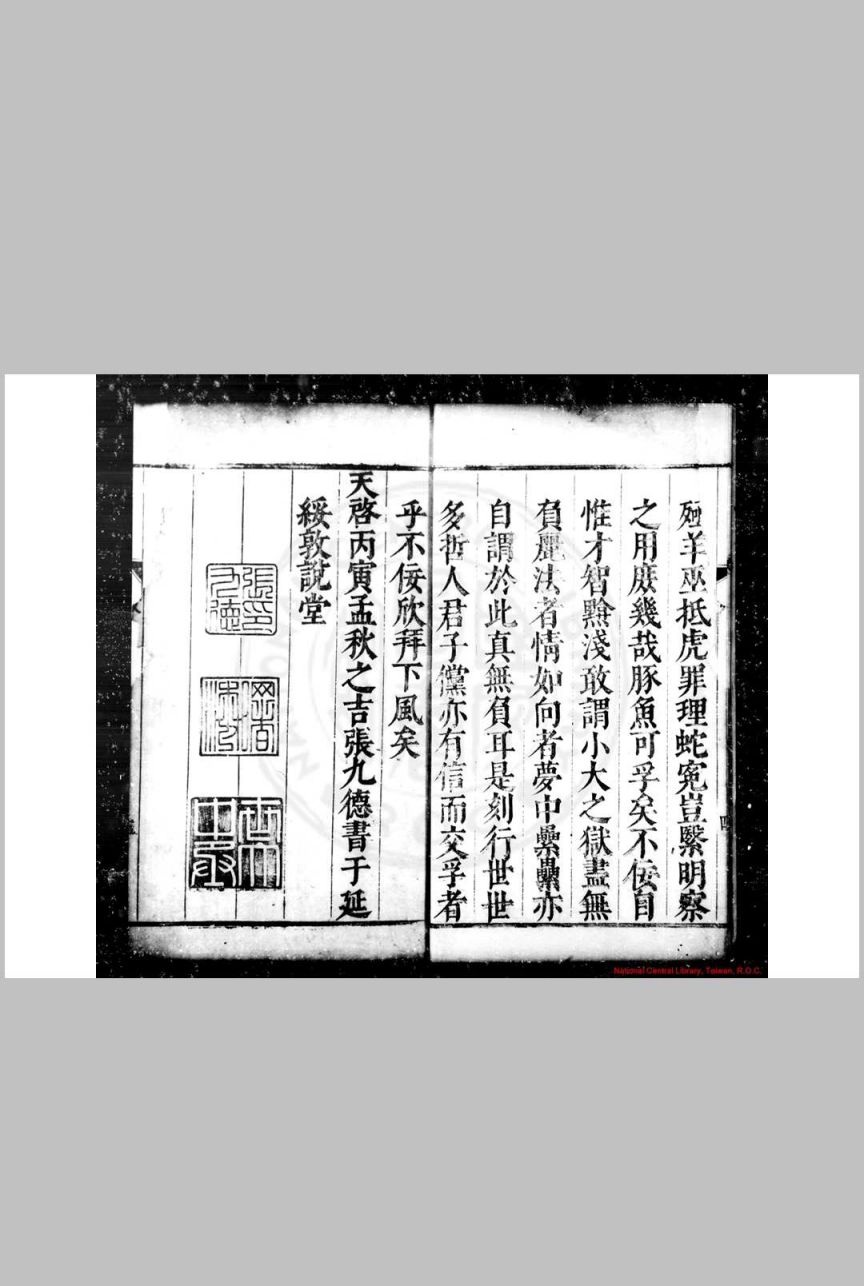 殛羊巫抵虎罪理蛇寃豈繄明察
之用庶幾哉豚魚可孚矣不佞自
惟才智黭淺敢謂小大之獄盡無
負麗法者情如向者夢中纍纍亦
自謂於此真無負耳是刻行世世
多哲人君子儻亦有信而交孚者
乎不佞欣拜下風矣
天啓丙寅孟秋之吉張九德書于延
綏敦說堂
張九德印
National Central Library, Taiwan, R.O.C.